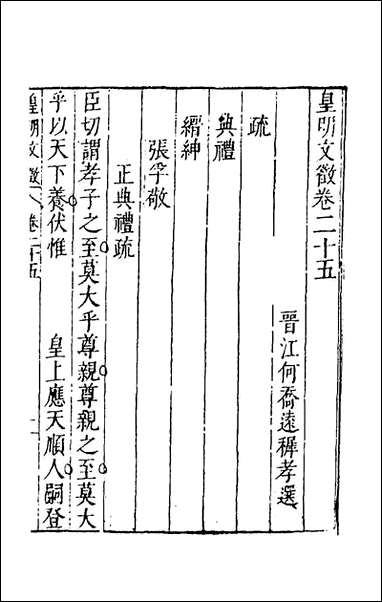 皇明文徵卷二十五
晉江何喬遠穉孝選
疏
典禮
縉紳
張孚敬
正典禮疏
臣切謂孝子之至莫大乎尊親尊親之至莫大
乎以天下養伏惟　皇上應天順人嗣登
皇明文徵　卷二十五　一